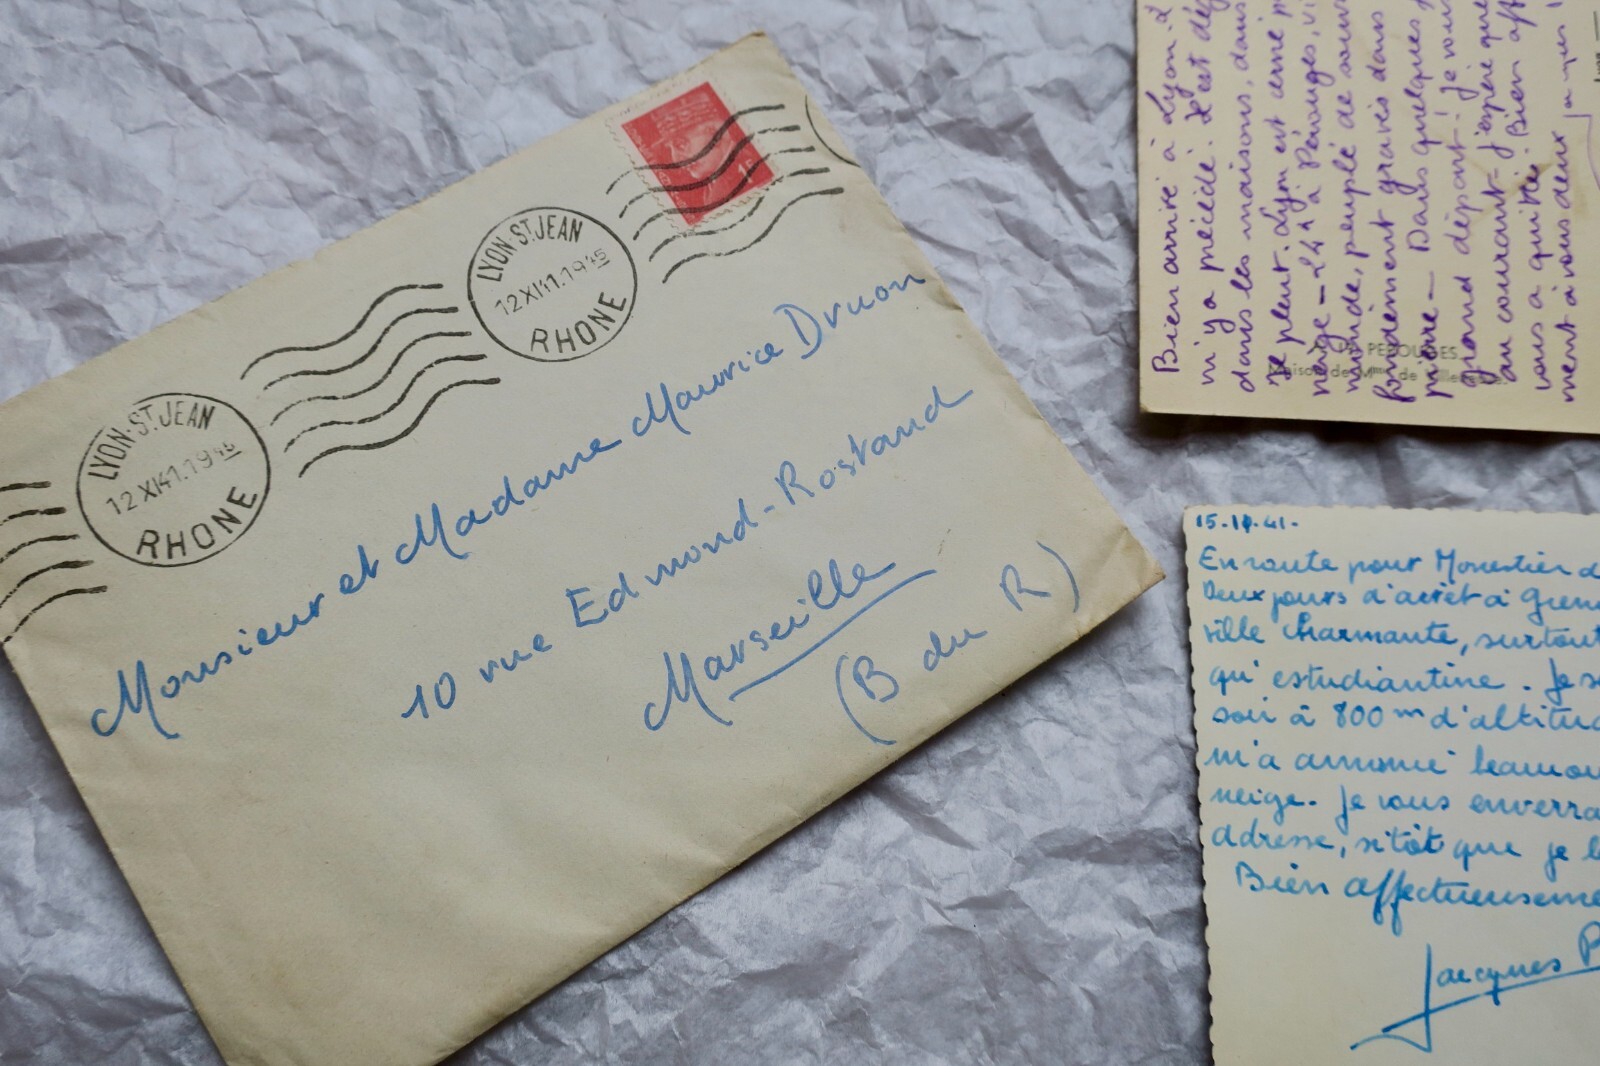 LYON-ST JEAN
12 XI 41.1945
RHONE
LYON-ST JEAN
12 XI 41.1945
RHONE
1F
Monsieur et Madame Maurice Druon
10 rue Edmond-Rostand
Marseille
(B du R)
Bien arrivé à Lyon.
m'y a précédé. Il est
dans les maisons, dans
Il pleut. Lyon est
neige - à Pérouges,
monde, peuplé de
fondément gravés dans
- Dans quelques
grand départ! Je vous
au courant - j'espère que
vous a quittés. Bien
ment à vous deux
PEROUGES
Maison de Mme de
15.11.41.
En route pour Monestier d
Deux jours d'arrêt à Gren
ville charmante, surtout
qu'estudiantine. Je
soir à 800 m d'altitud
m'a annoncé beaucou
neige. Je vous enverra
adresse, sitôt que je l
Bien affectueuseme
Jacques